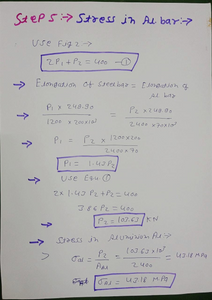 Step 5 :- Stress in Al bar :-
Use Eqn 2 :-
2P₁ + P₂ = 400 - ①
Elongation of steel bar = Elongation of Al bar
P₁ × 240.90 / 1200 × 200×10³ = P₂ × 240.90
P₁ = P₂ × 1200×200 / 2400×70
P₁ = 1.43 P₂
Use Eqn ①
2 × 1.43 P₂ + P₂ = 400
3.86 P₂ = 400
P₂ = 103.63 KN
Stress in Aluminium
σAl = P₂ / AAl = 103.63 × 10³ / 2400 = 43.18 MPa
σAl = 43.18 MPa